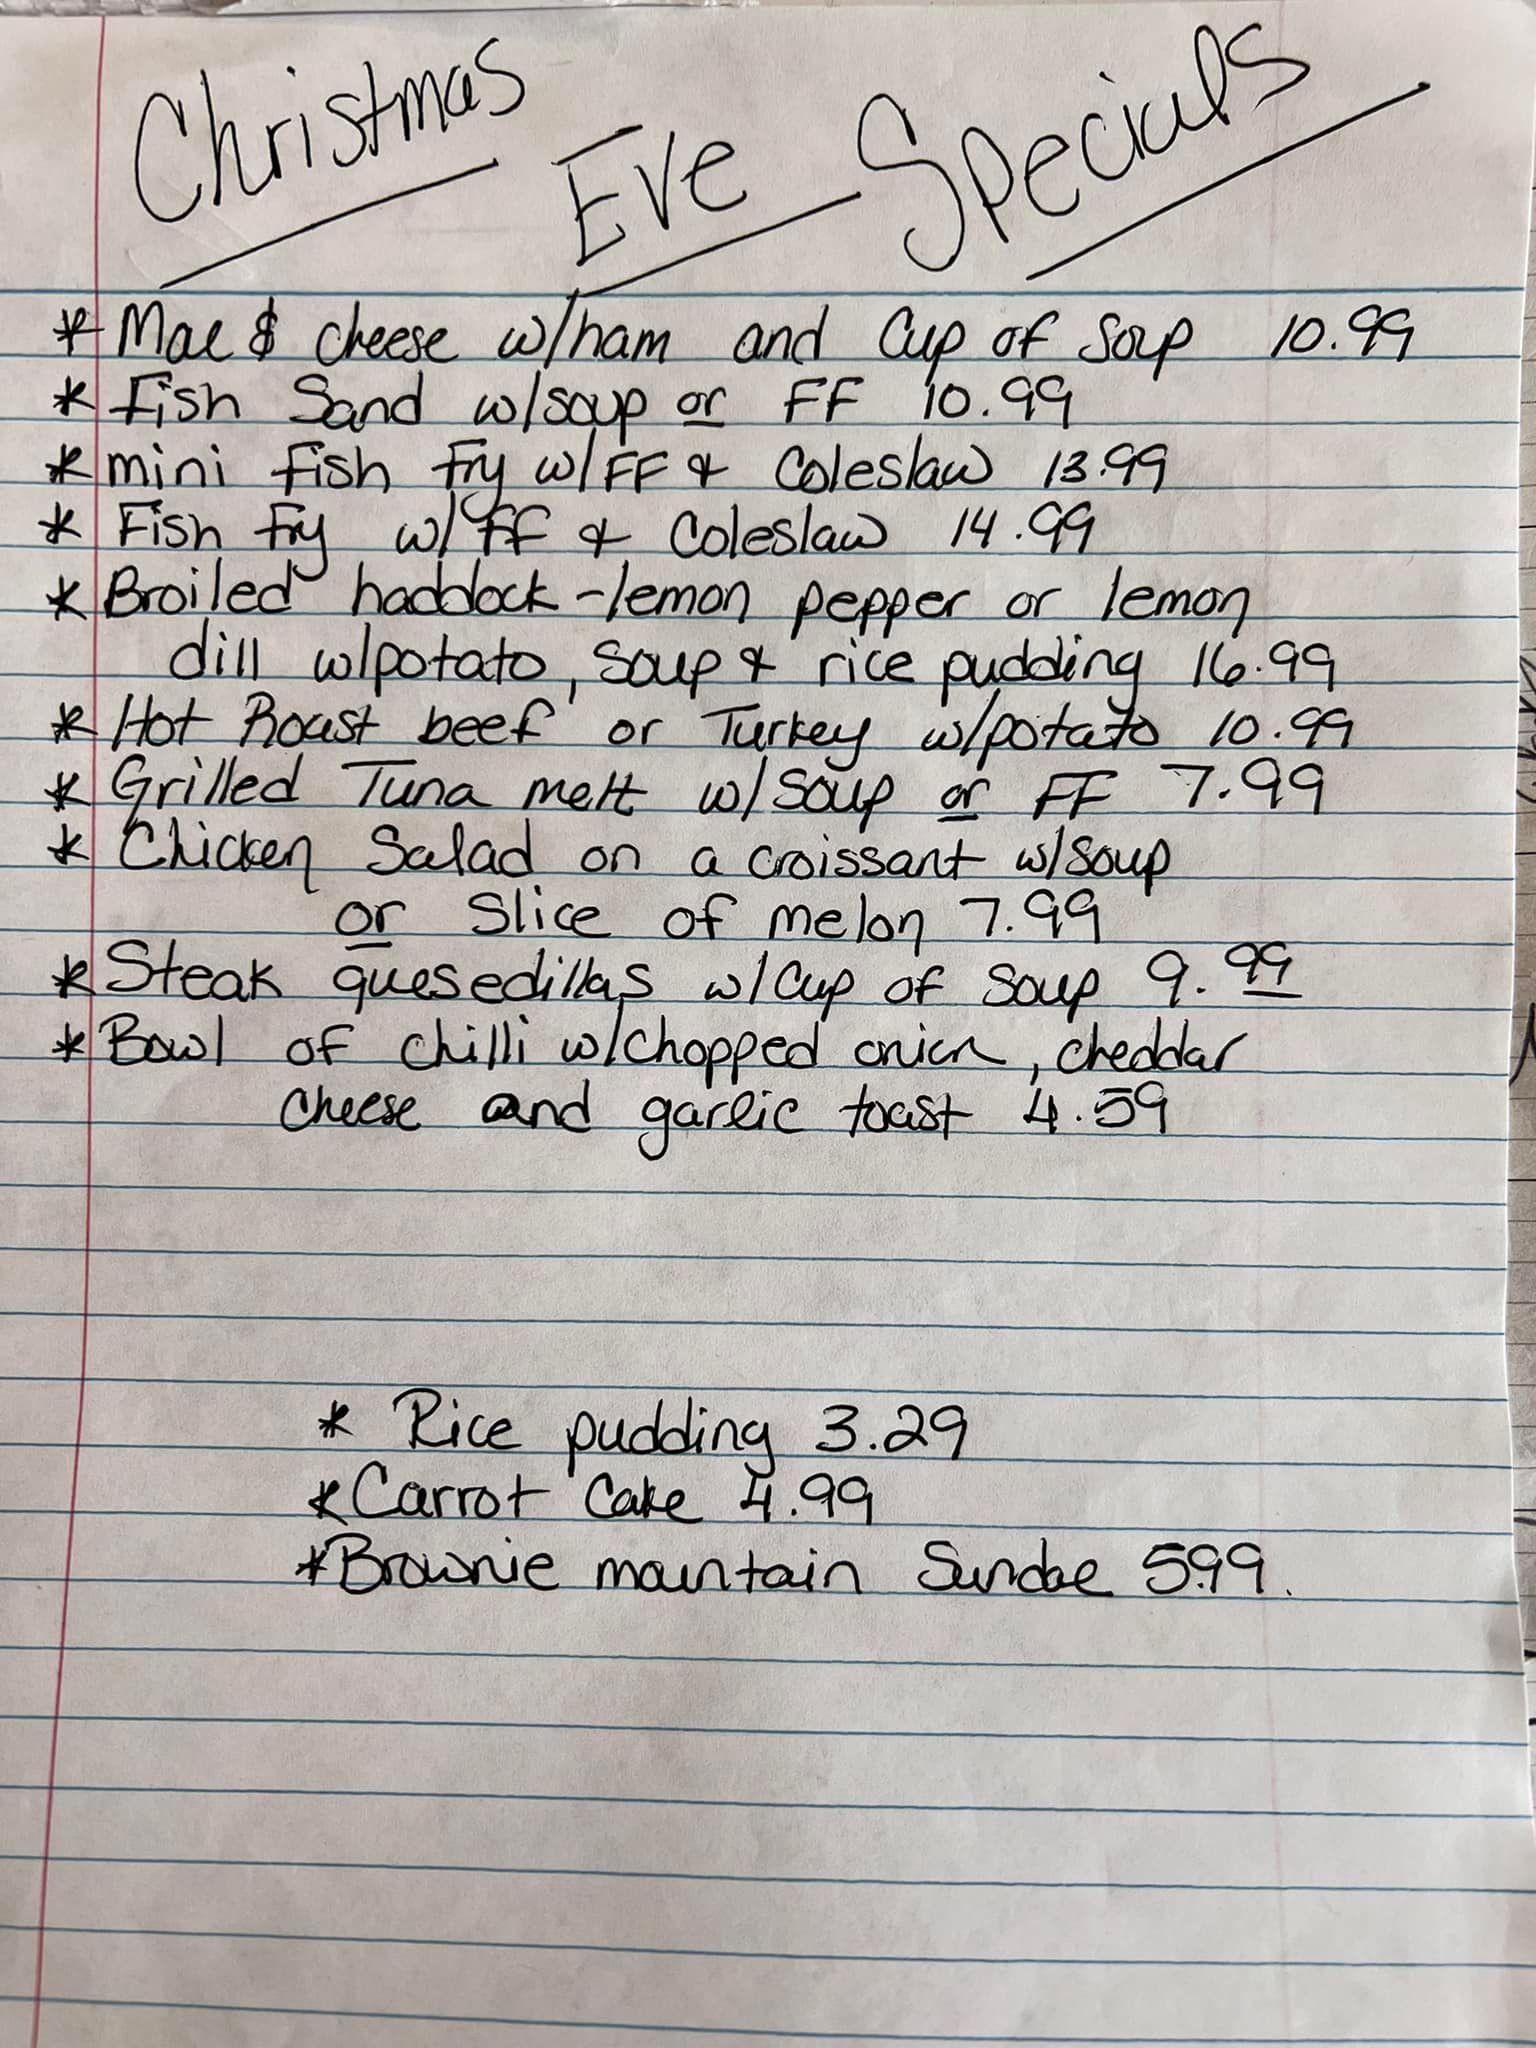 Christmas Eve Specials
* Mac & cheese w/ham and Cup of Soup 10.99
* Fish Sand w/soup or FF 10.99
* mini fish fry w/FF & Coleslaw 13.99
* Fish fry w/ FF & Coleslaw 14.99
* Broiled haddock - lemon pepper or lemon
dill w/potato, soup & rice pudding 16.99
* Hot Roast beef or Turkey w/potato 10.99
* Grilled Tuna melt w/ soup or FF 7.99
* Chicken Salad on a croissant w/soup
or slice of melon 7.99
* Steak quesedillas w/ Cup of Soup 9.99
* Bowl of chilli w/chopped onion, cheddar
cheese and garlic toast 4.59
* Rice pudding 3.29
* Carrot Cake 4.99
* Brownie mountain Sundae 5.99.